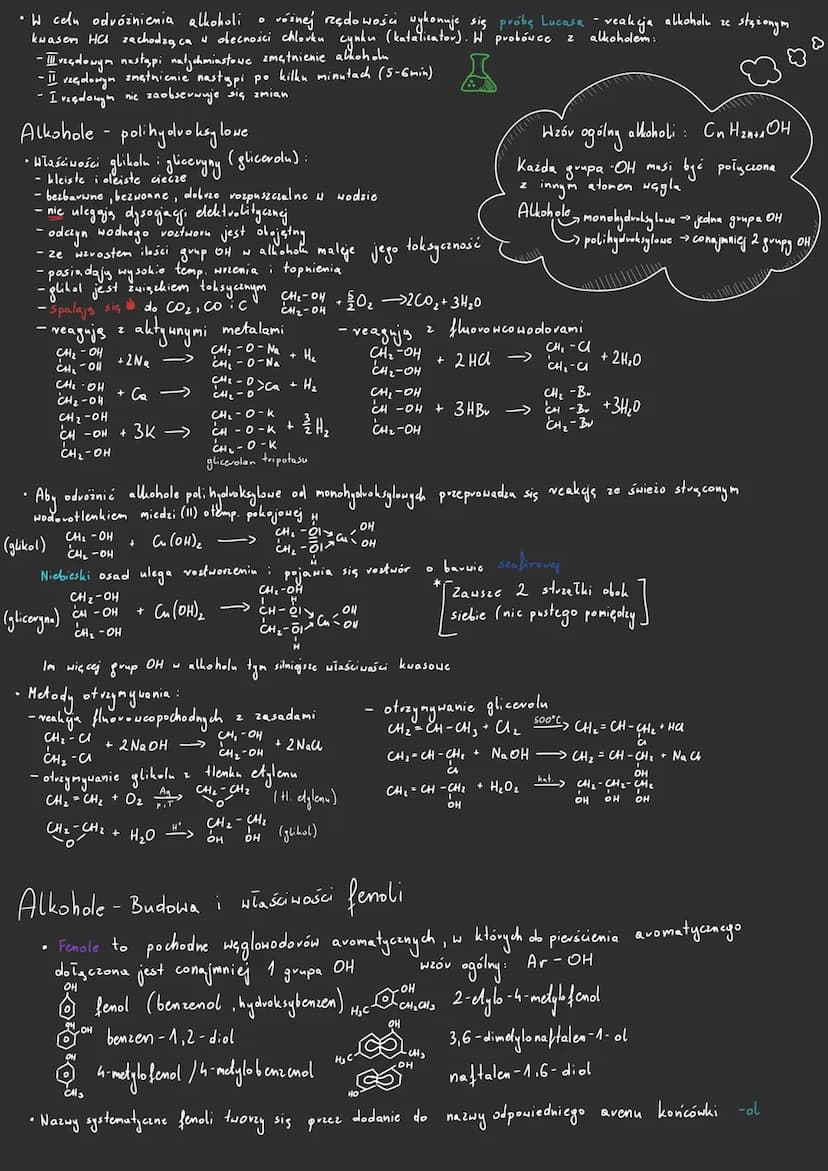 • W celu odróżnienia alkoholi o różnej rzędowości wykonuje się próbę Lucasa - reakcja alkoholu ze stężonym
kwasem HCl zachodząca w obecności chlorku cynku (katalizator). W probówce z alkoholem:
- III rzędowym nastąpi natychmiastowe zmętnienie alkoholu
- II rzędowym zmętnienie nastąpi po kilku minutach (5-6min)
- I rzędowym nie zaobserwuje się zmian
Wzór ogólny alkoholi: CnH2n+1OH
Każda grupa -OH musi być połączona
z innym atomem węgla
Alkohole → monohydroksylowe → jedna grupa OH
→ polihydroksylowe → conajmniej 2 grupy OH
Alkohole - polihydroksylowe
• Właściwości glikolu i gliceryny (glicerolu):
- kleiste i oleiste ciecze
- bezbarwne, bezwonne, dobrze rozpuszczalne w wodzie
- nie ulegają dysocjacji elektrolitycznej
- odczyn wodnego roztworu jest obojętny
- ze wzrostem ilości grup OH w alkoholu maleje jego toksyczność
- posiadają wysokie temp. wrzenia i topnienia
- glikol jest związkiem toksycznym
- spalają się do CO₂, CO i C
CH₂-OH
CH₂-OH + 5/2 O₂ → 2CO₂ + 3H₂O
- reagują z aktywnymi metalami
CH₂-OH CH₂-O-Na
CH₂-OH + 2Na → CH₂-O-Na + H₂
CH₂-OH CH₂-O
CH₂-OH + Ca → CH₂-O >Ca + H₂
CH₂-OH CH₂-O-K
CH-OH + 3K → CH-O-K + 3/2 H₂
CH₂-OH CH₂-O-K
glicerolan tripotasu
- reagują z fluorowcowodorami
CH₂-OH CH₂-Cl
CH₂-OH + 2HCl → CH₂-Cl + 2H₂O
CH₂-OH CH₂-Br
CH-OH + 3HBr → CH-Br + 3H₂O
CH₂-OH CH₂-Br
• Aby odróżnić alkohole polihydroksylowe od monohydroksylowych przeprowadza się reakcję ze świeżo strąconym
wodorotlenkiem miedzi (II) o temp. pokojowej
H
(glikol) CH₂-OH CH₂-O OH
CH₂-OH + Cu(OH)₂ → CH₂-O Cu OH
H
Niebieski osad ulega roztworzeniu i pojawia się roztwór o barwie szafirowej
CH₂-OH CH₂-OH
(gliceryna) CH-OH + Cu(OH)₂ → CH-O Cu OH
CH₂-OH CH₂-O OH
H
* [Zawsze 2 strzałki obok
siebie (nic pustego pomiędzy]
Im więcej grup OH w alkoholu tym silniejsze właściwości kwasowe
• Metody otrzymywania:
- reakcja fluorowcopochodnych z zasadami
CH₂-Cl CH₂-OH
CH₂-Cl + 2NaOH → CH₂-OH + 2NaCl
- otrzymywanie glikolu z tlenku etylenu
CH₂=CH₂ + O₂ Ag p,T → CH₂-CH₂ O (tl. etylenu)
CH₂-CH₂ O + H₂O H⁺ → CH₂-CH₂ OH OH (glikol)
- otrzymywanie glicerolu
CH₂=CH-CH₃ + Cl₂ 500°C → CH₂=CH-CH₂ + HCl
Cl
CH₂=CH-CH₂ + NaOH → CH₂=CH-CH₂ + NaCl
Cl OH
CH₂=CH-CH₂ + H₂O₂ kat. → CH₂-CH₂-CH₂
OH OH OH OH
Alkohole - Budowa i właściwości fenoli
• Fenole to pochodne węglowodorów aromatycznych, w których do pierścienia aromatycznego
dołączona jest conajmniej 1 grupa OH wzór ogólny: Ar-OH
OH fenol (benzenol, hydroksybenzen)
OH H₃C CH₂CH₃ 2-etylo-4-metylofenol
OH OH benzen-1,2-diol
OH H₃C CH₃ 3,6-dimetylonaftalen-1-ol
OH CH₃ 4-metylofenol / 4-metylobenzenol
OH HO naftalen-1,6-diol
• Nazwy systematyczne fenoli tworzy się przez dodanie do nazwy odpowiedniego arenu końcówki -ol